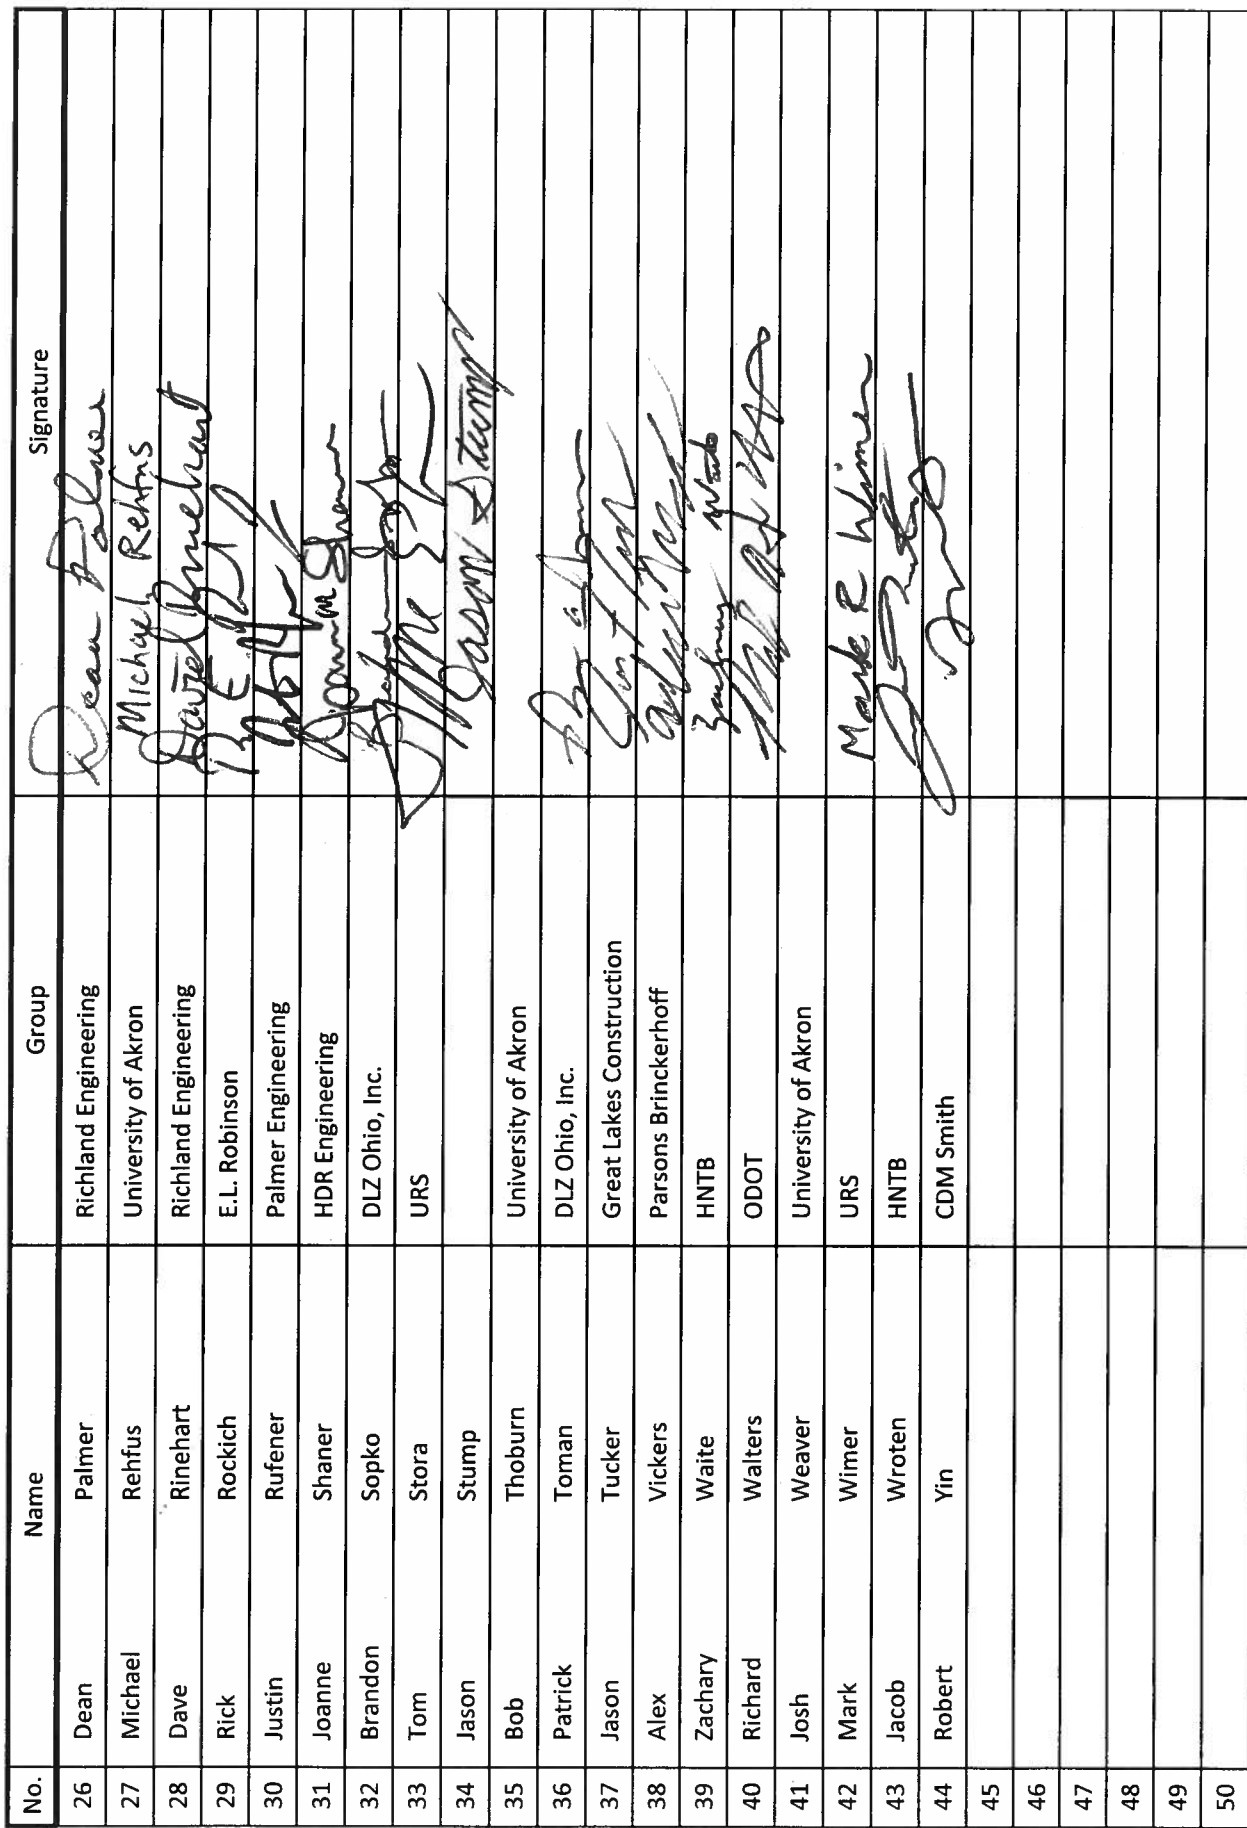 No. Name Group Signature
26 Dean Palmer Richland Engineering Dean Palmer
27 Michael Rehfus University of Akron Michael Rehfus
28 Dave Rinehart Richland Engineering David Rinehart
29 Rick Rockich E.L. Robinson
30 Justin Rufener Palmer Engineering
31 Joanne Shaner HDR Engineering
32 Brandon Sopko DLZ Ohio, Inc.
33 Tom Stora URS
34 Jason Stump Jason Stump
35 Bob Thoburn University of Akron
36 Patrick Toman DLZ Ohio, Inc.
37 Jason Tucker Great Lakes Construction
38 Alex Vickers Parsons Brinckerhoff
39 Zachary Waite HNTB Zachary Waite
40 Richard Walters ODOT
41 Josh Weaver University of Akron
42 Mark Wimer URS Mark R Wimer
43 Jacob Wroten HNTB
44 Robert Yin CDM Smith
45
46
47
48
49
50